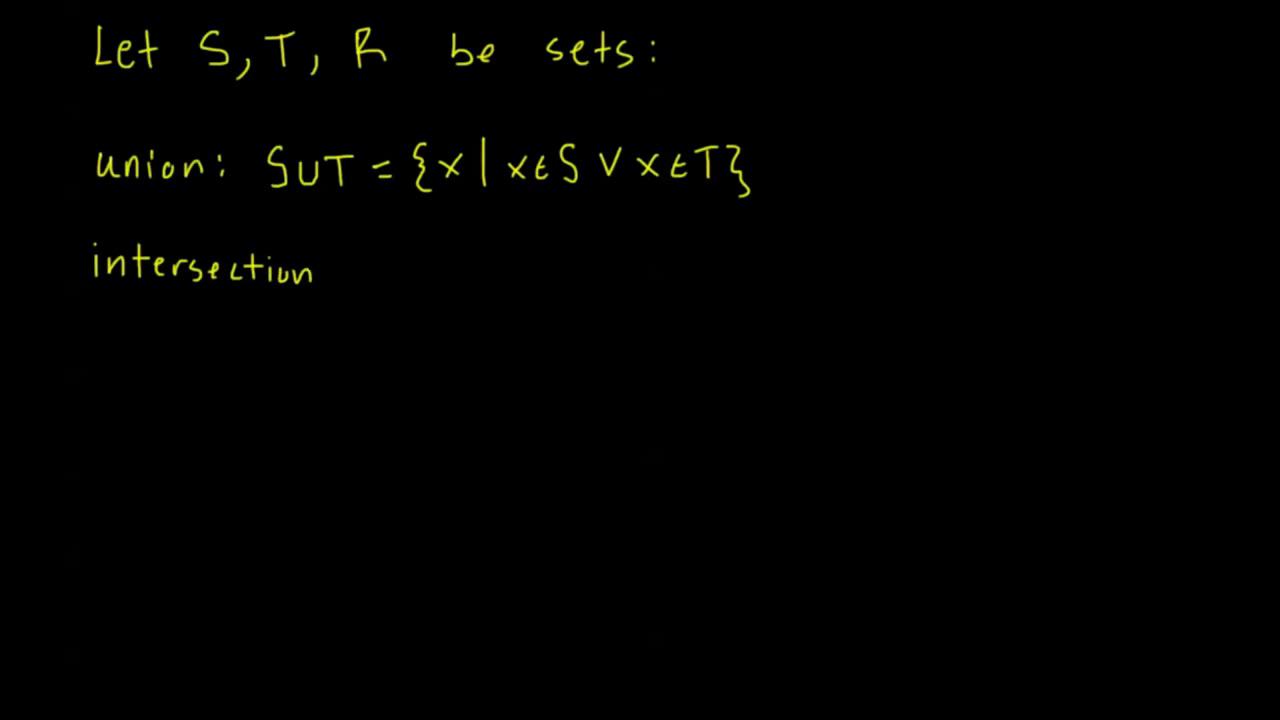 Let S, T, R be sets:
union: S∪T = {x | x∈S ∨ x∈T}
intersection